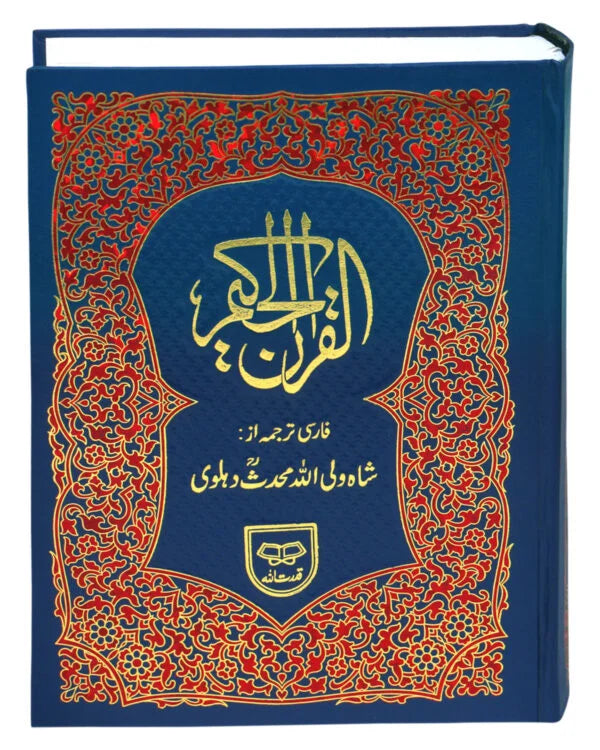 القرآن الحکیم
فارسی ترجمہ از:
شاہ ولی اللہ محدثؒ دہلوی
قدرت اللہ